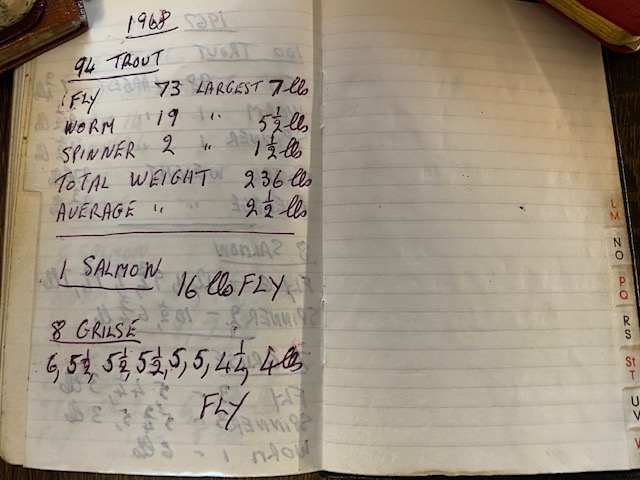 1968
94 TROUT
FLY 73 LARGEST 7 lbs
WORM 19 " 5½ lbs
SPINNER 2 " 1½ lbs
TOTAL WEIGHT 236 lbs
AVERAGE " 2½ lbs
1 SALMON
16 lbs FLY
8 GRILSE
6, 5½, 5½, 5½, 5, 5, 4½, 4 lbs
FLY
L
M
N
O
P
Q
R
S
St
T
U
V